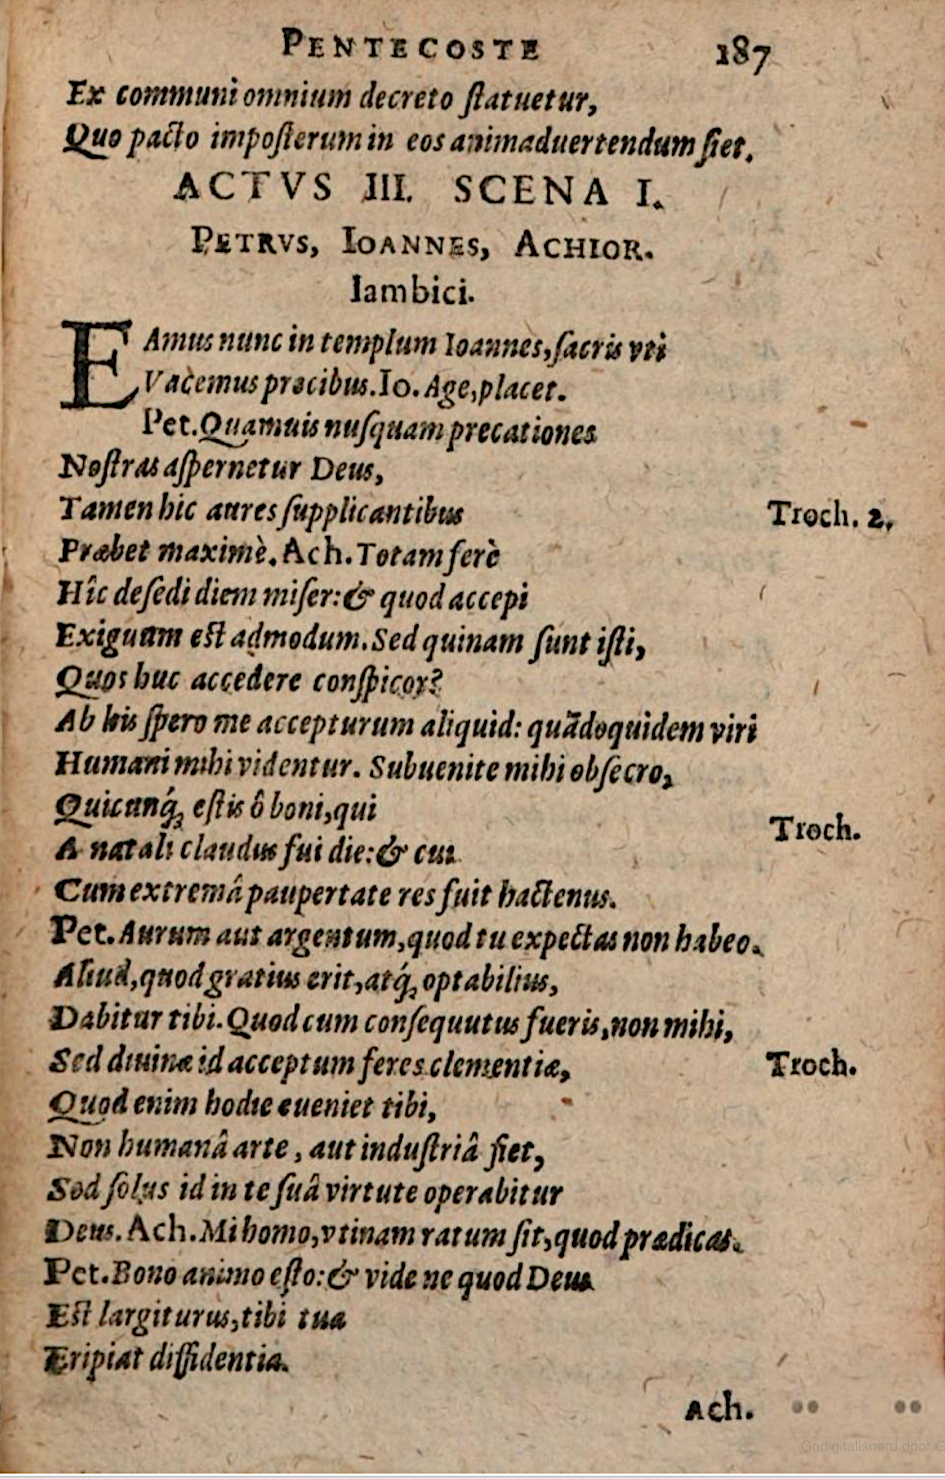 PENTECOSTE 187
Ex communi omnium decreto ſtatuetur,
Quo pacto impoſterum in eos animaduertendum fiet.
ACTVS III. SCENA I.
PETRVS, IOANNES, ACHIOR.
Iambici.
EAmus nunc in templum Ioannes, ſacris vti
Vacemus precibus. Io. Age, placet.
Pet. Quamuis nuſquam precationes
Noſtras aſpernetur Deus,
Tamen hic aures ſupplicantibus Troch. 2.
Præbet maximè. Ach. Totam ferè
Hîc deſedi diem miſer: & quod accepi
Exiguum eſt admodum. Sed quinam ſunt iſti,
Quos huc accedere conſpicor?
Ab his ſpero me accepturum aliquid: quãdoquidem viri
Humani mihi videntur. Subuenite mihi obſecro,
Quicunq́; eſtis ô boni, qui
A natali claudus fui die: & cui Troch.
Cum extremâ paupertate res fuit hactenus.
Pet. Aurum aut argentum, quod tu expectas non habeo.
Aliud, quod gratius erit, atq́; optabilius,
Dabitur tibi. Quod cum conſequutus fueris, non mihi,
Sed diuinæ id acceptum feres clementiæ, Troch.
Quod enim hodie eueniet tibi,
Non humanâ arte, aut induſtriâ fiet,
Sed ſolus id in te ſuâ virtute operabitur
Deus. Ach. Mi homo, vtinam ratum ſit, quod prædicas.
Pet. Bono animo eſto: & vide ne quod Deus
Eſt largiturus, tibi tua
Eripiat diffidentia.
Ach.